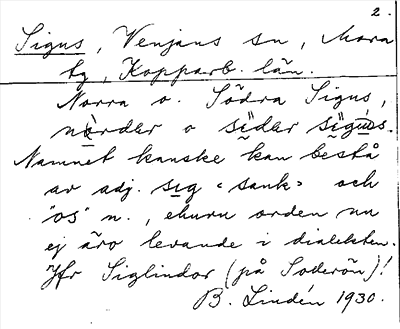 2.
Sigus, Venjans sn, Mora
tg, Kopparb. län.
Norra o. Södra Sigus,
nòrdar o sìdar
Namnet kanske kan bestå
av adj. sig "sank" och
"os" n., ehuru orden nu
ej äro levande i dialekten.
Jfr Siglindor (på Soderön)!
B. Lindén 1930.